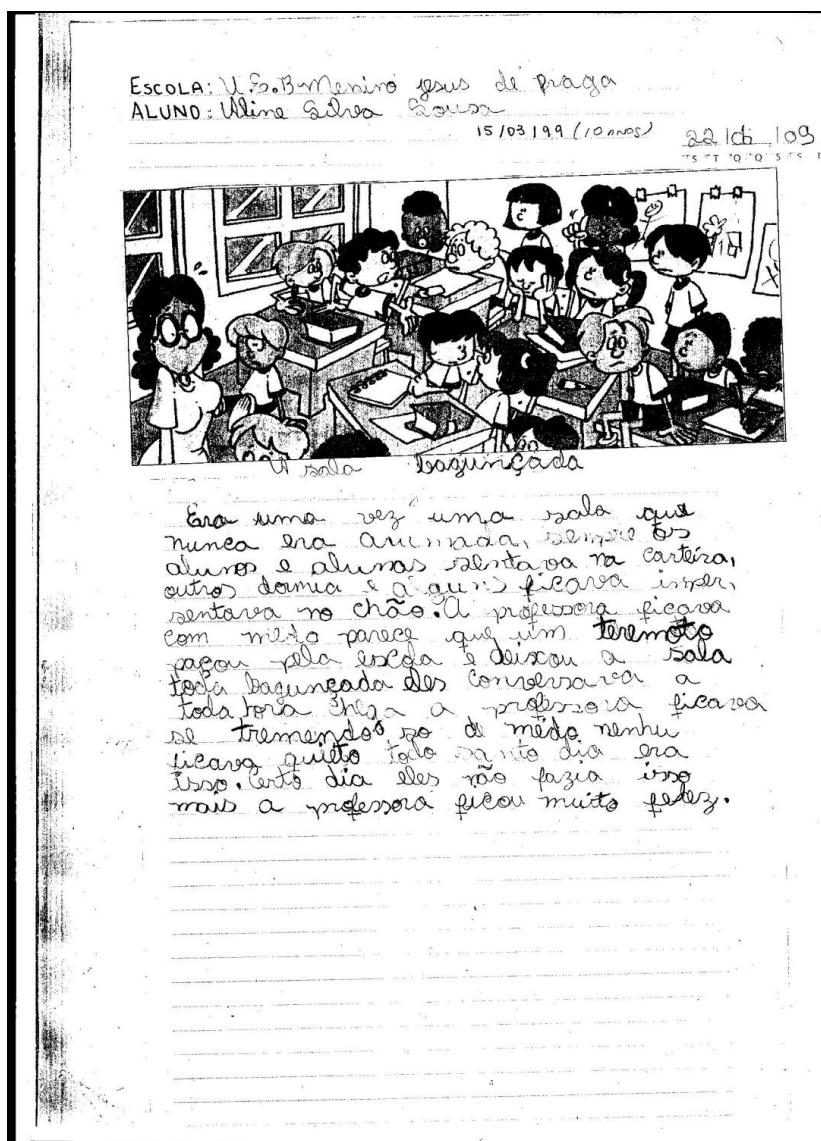 ESCOLA: U.E.B Menino jesus de praga
ALUNO: Aline Silva Sousa
15/03/99 (10 anos)
22 09
A sala bagunçada
Era uma vez uma sala que
nunca era arumada, sempre os
alunos e alunas sentava na carteira,
outros dormia e alguns ficava
sentava no chão. A professora ficava
com medo parece que um teremoto
paçou pela escola e deixou a sala
toda bagunçada eles conversava a
toda hora chega a professora ficava
se tremendo so de medo nenhu
ficava quieto todo santo dia era
isso. Certo dia eles não fazia isso
mais a professora ficou muito felez.